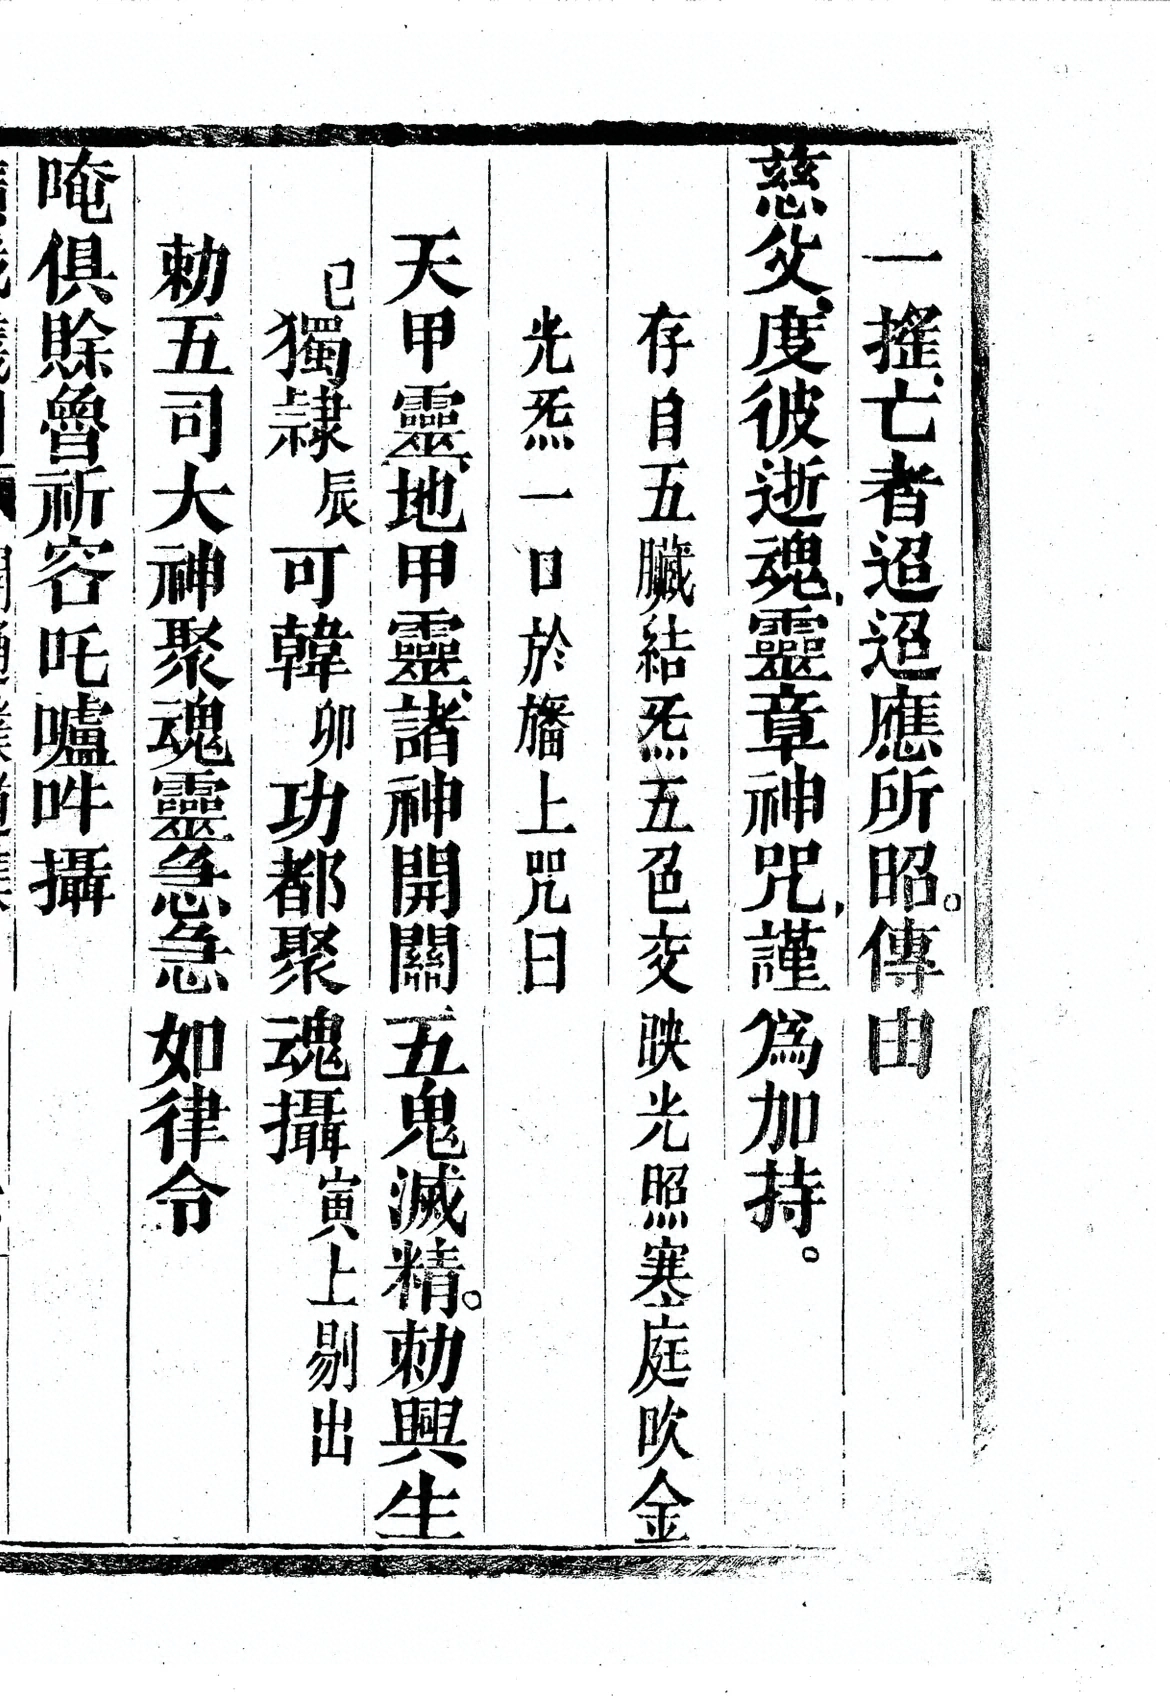 一搖、亡者迢迢應所昭。傳由
慈父、度彼逝魂、靈章神咒、謹爲加持。
存自五臟結炁五色交映光照寒庭吹金
光炁一口於旛上咒曰
天甲靈、地甲靈、諸神開關五鬼滅精。勑興生
巳獨隷辰可韓卯功都聚魂攝寅上剔出
勑五司大神聚魂靈急急如律令
唵俱賒魯祈容吒嚧吽攝